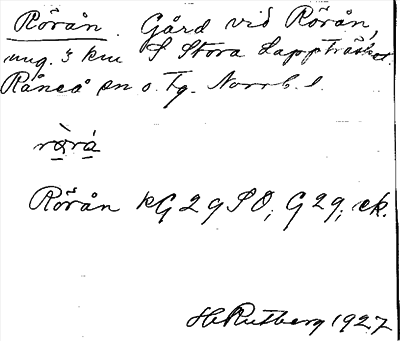 Rörån. Gård vid Rörån,
ung. 3 km S Stora Lappträsket.
Råneå sn o. Tg. Norrb. l.
rö̀rá
Rörån kG 2 g SO, G 2 g, ek.
H Rutberg 1927